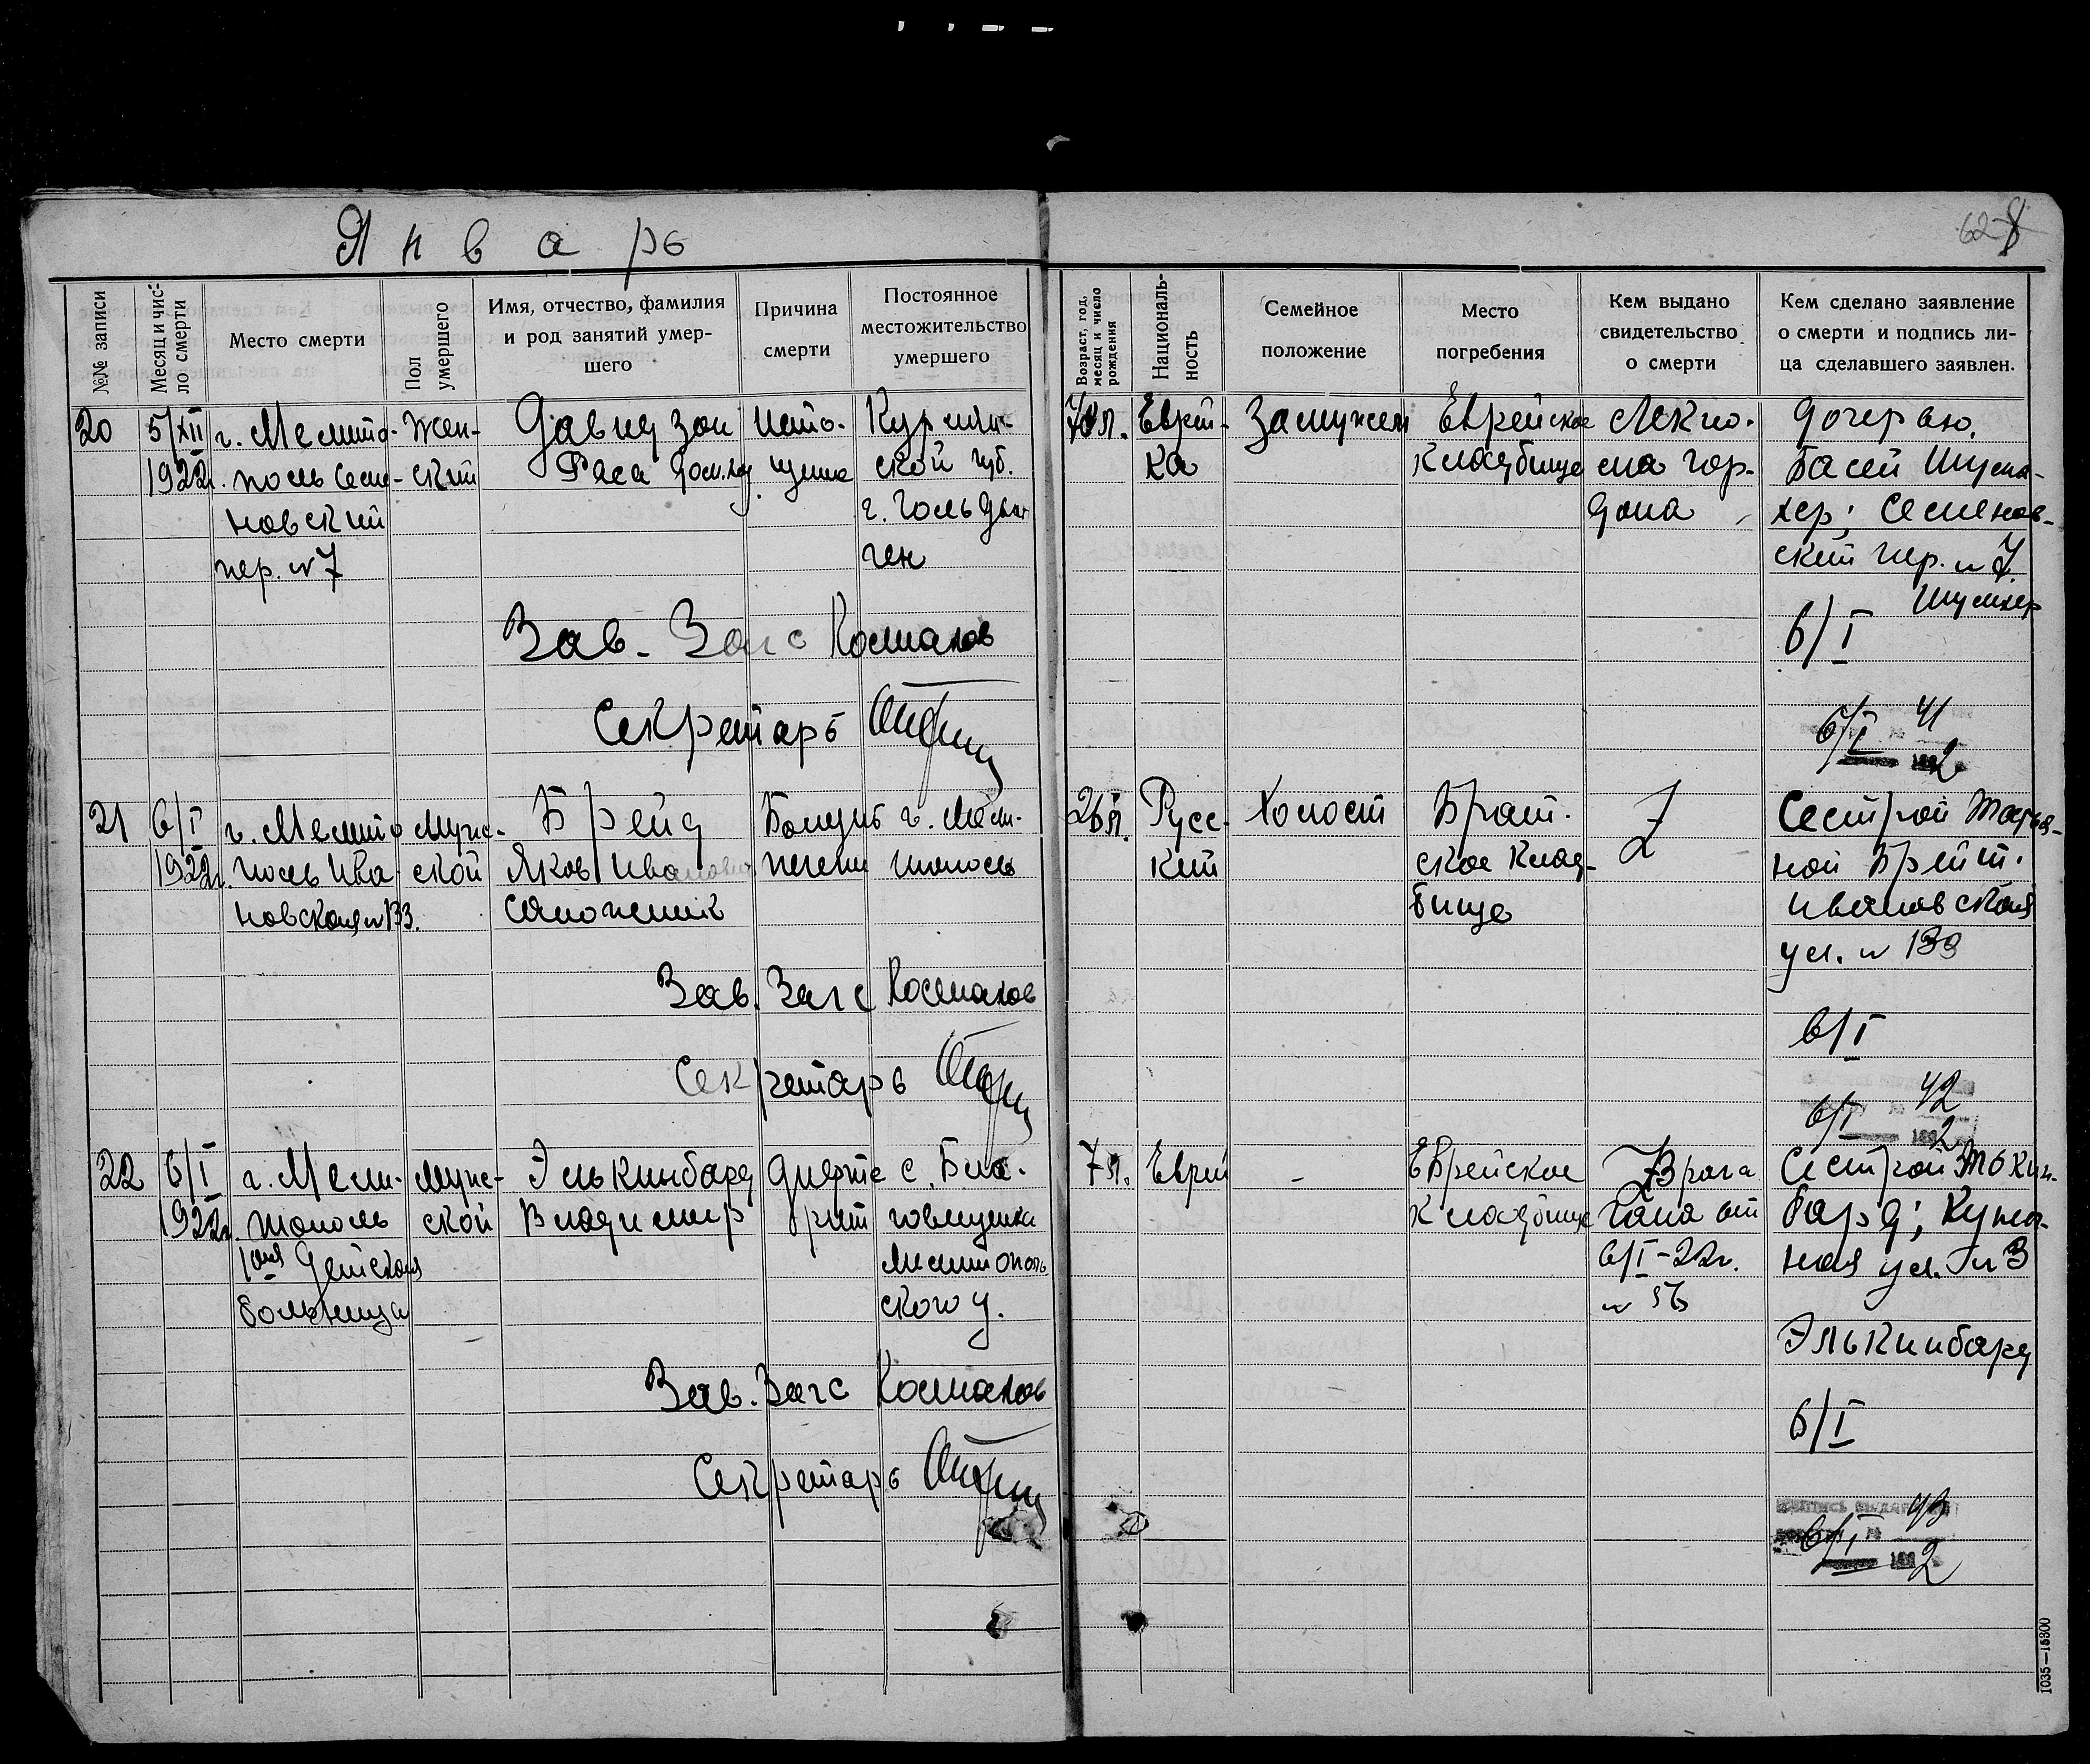 Январь
62 8
№№ записи
Месяц и чис-
ло смерти
Место смерти
Пол
умершего
Имя, отчество, фамилия
и род занятий умер-
шего
Причина
смерти
Постоянное
местожительство
умершего
Возраст, год,
месяц и число
рождения
Националь-
ность
Семейное
положение
Место
погребения
Кем выдано
свидетельство
о смерти
Кем сделано заявление
о смерти и подпись ли-
ца сделавшего заявлен.
20
5/XII
1922г.
г. Мелито-
поль Семе-
новский
пер. № 7
Жен-
ский
Давидзон
Раса дом.хоз.
Исто-
щение
Курлянд-
ской губ.
г. Гольдин-
ген
70 л.
Еврей-
ка
Замужем
Еврейское
кладбище
дочерью
Басей Шума-
хер; Семенов-
ский пер. № 7.
6/I
Зав. Загс
Секретарь
6/I 41
2
21
6/I
1922г.
г. Мелито
поль Ива
новская № 133.
Мужс-
ской
Брейд
Яков Иванович
сапожник
Болезнь
печени
г. Мели-
тополь
26 л.
Русс-
кий
Холост
Брат-
ское клад-
бище
Сестрой Татья-
ной Брейт.
Ивановская
ул. № 133
6/I
Зав. Загс
Секретарь
6/I 42
2
22
6/I
1922г.
г. Мели-
тополь
1ая Детская
больница
Мужс-
ской
Элькинбард
Владимир
Дифте
рит
с. Бла-
говещенка
Мелитополь
ского у.
7 л.
Еврей
-
Еврейское
кладбище
Врача
Гана от
6/I-22г.
№ 56
Сестрой
бард; Кузне-
ная ул. № 3
Элькинбард
6/I
Зав. Загс
Секретарь
6/I 43
2
1035—15300